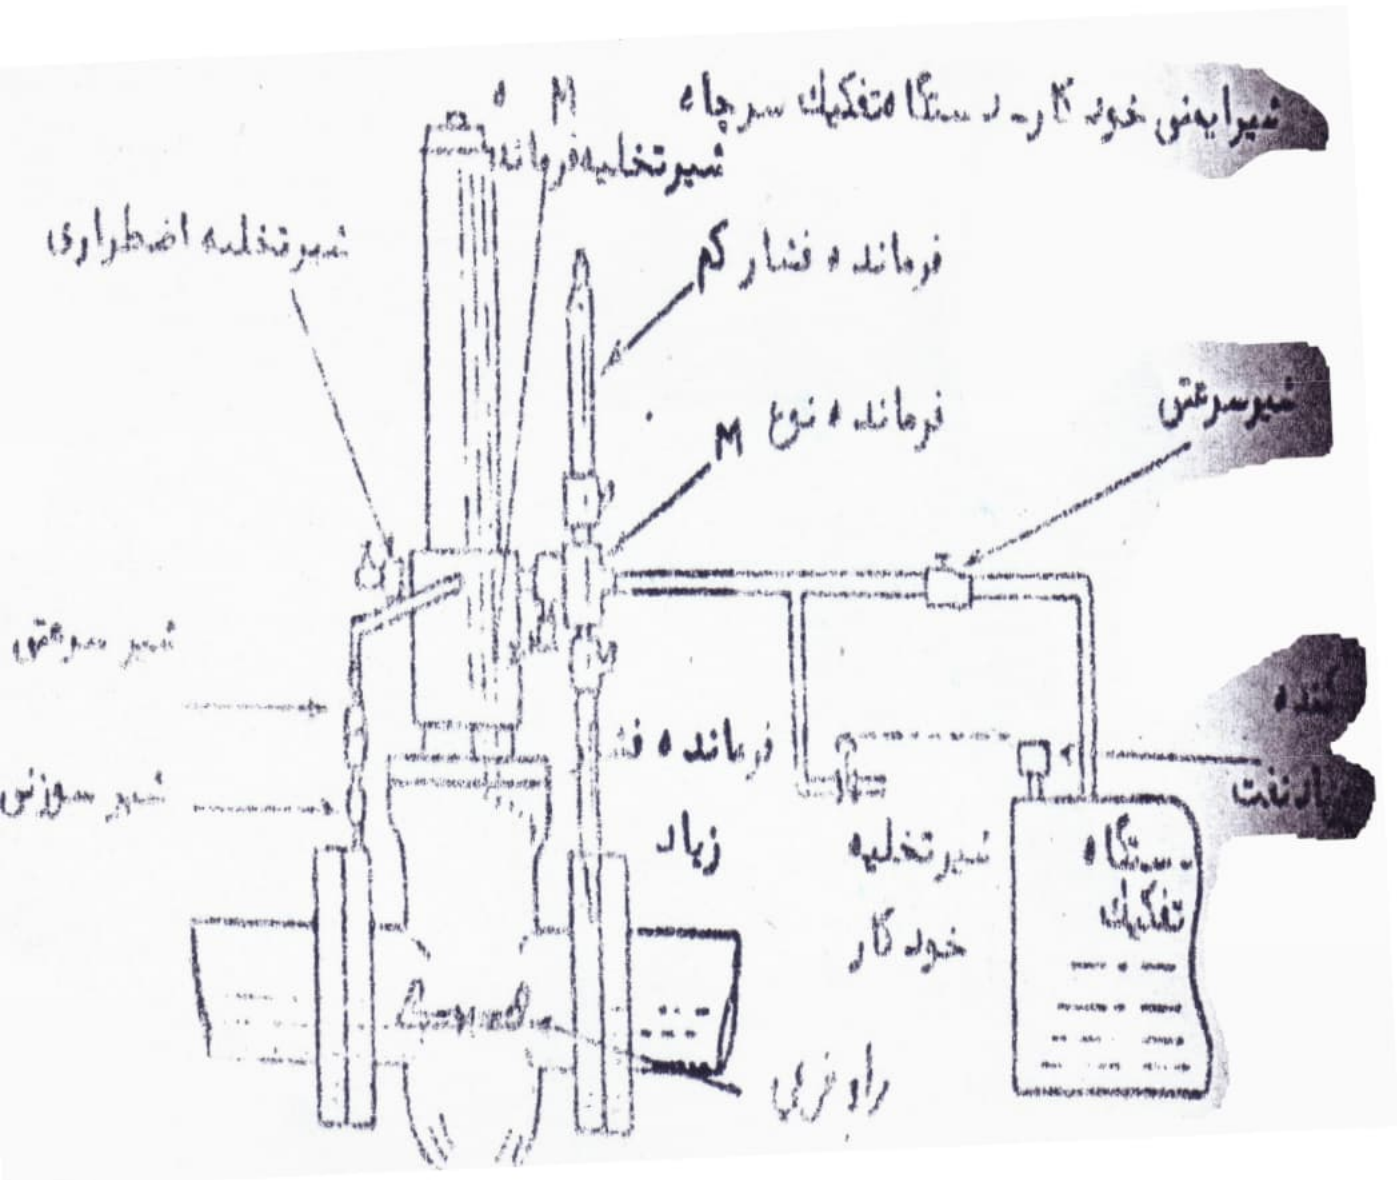 شیرایمنی خودکار دستگاه تفکیك سرچاه
شیرتخلیه فرمانده M
شیرتخلیه اضطراری
فرمانده فشار کم
فرمانده نوع M
شیرسرعتی
شیر سرعتی
شیر سوزنی
فرمانده فش
زیاد
کننده
زیاد نفت
شیرتخلیه
خودکار
دستگاه
تفکیك
راه فرعی